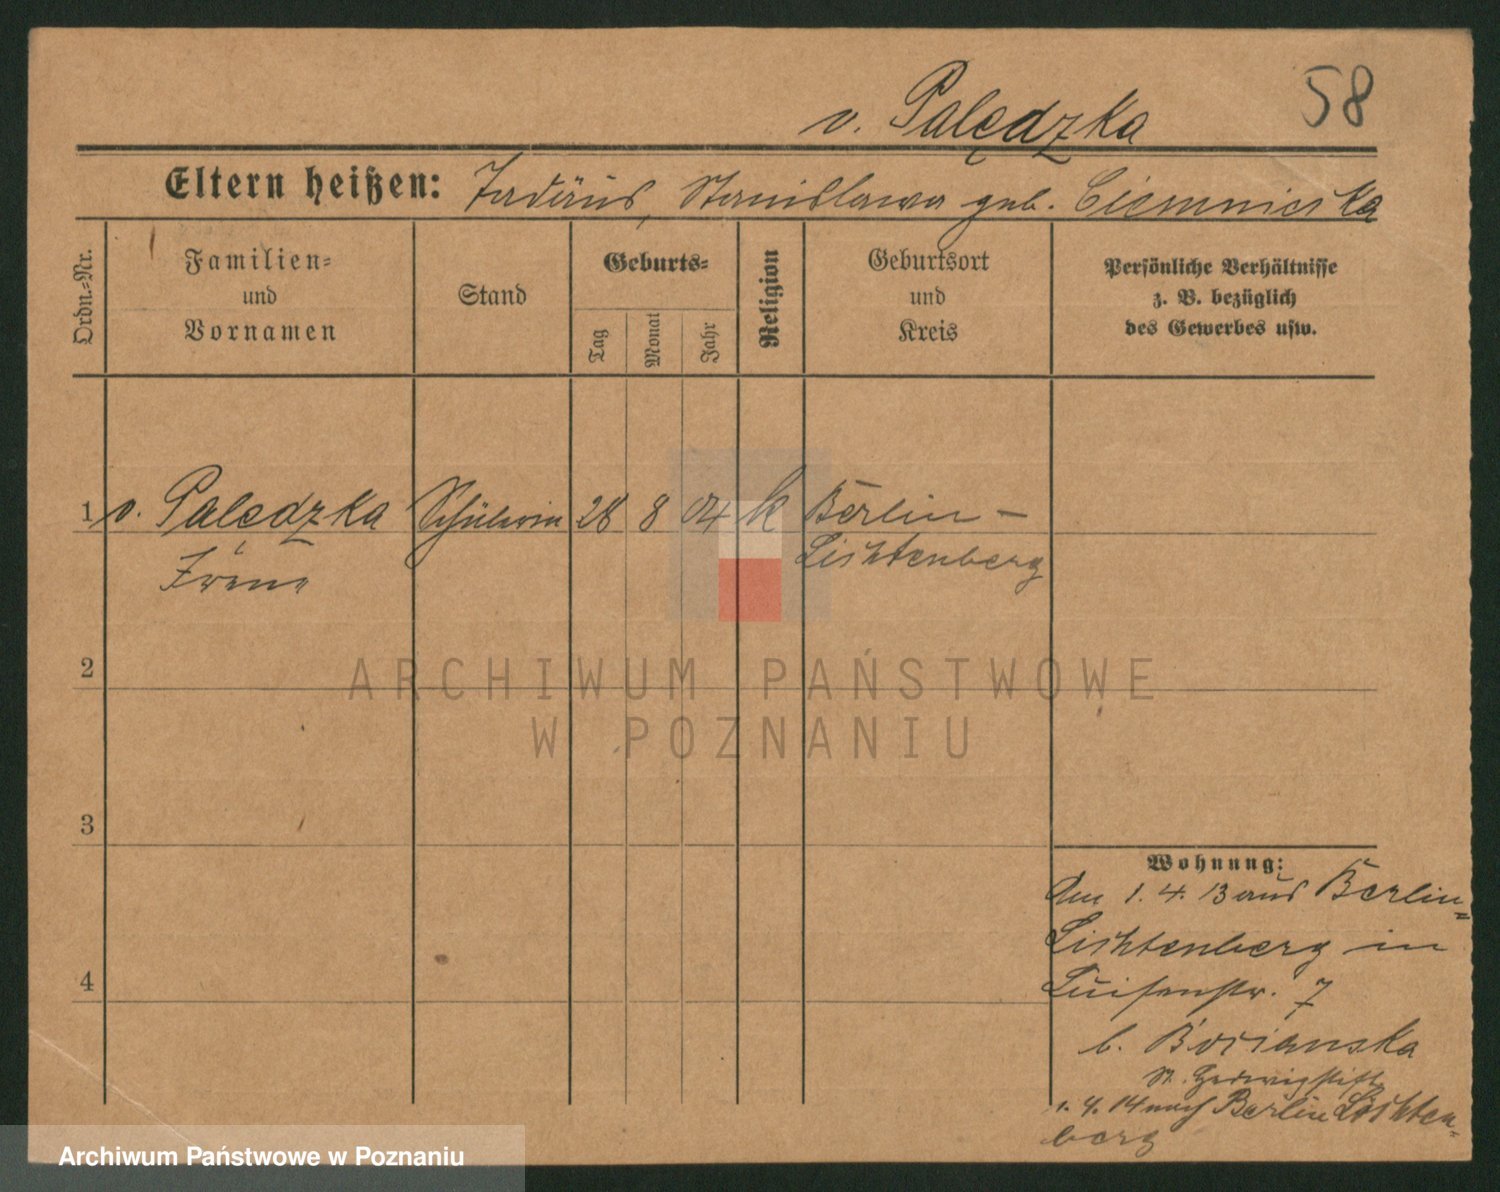 58
v. Palędzka
Eltern heißen: Tadäus, Stanislawa geb. Ciemnieska
Ordn.-Nr.
Familien-
und
Vornamen
Stand
Geburts-
Tag
Monat
Jahr
Religion
Geburtsort
und
Kreis
Persönliche Verhältnisse
z. B. bezüglich
des Gewerbes usw.
1 v. Palędzka Schülerin 28 8 04 k Berlin -
Irene Lichtenberg
2
ARCHIWUM PAŃSTWOWE
W POZNANIU
3
Wohnung:
Am 1. 4. 13 aus Berlin-
Lichtenberg in
4
Luisenstr. 7
b. Bocianska
St. Hedwigstift
1. 4. 14 nach Berlin Lichten-
berg
Archiwum Państwowe w Poznaniu